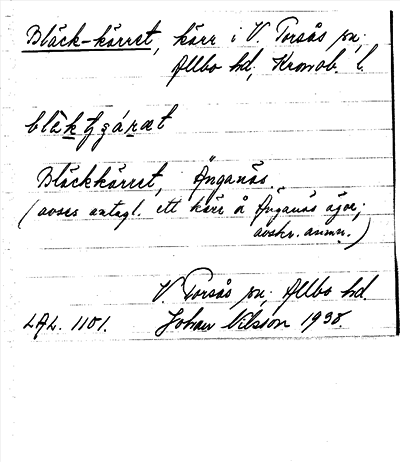 Bläck-kärret, kärr i V. Torsås sn,
Allbo hd, Kronob. l.
Bläckkärret, Änganäs.
(avses antagl. ett kärr å Änganäs ägor;
avskr. anm.)
V. Torsås sn, Allbo hd.
LAL. 1101. Johan Nilsson 1938.